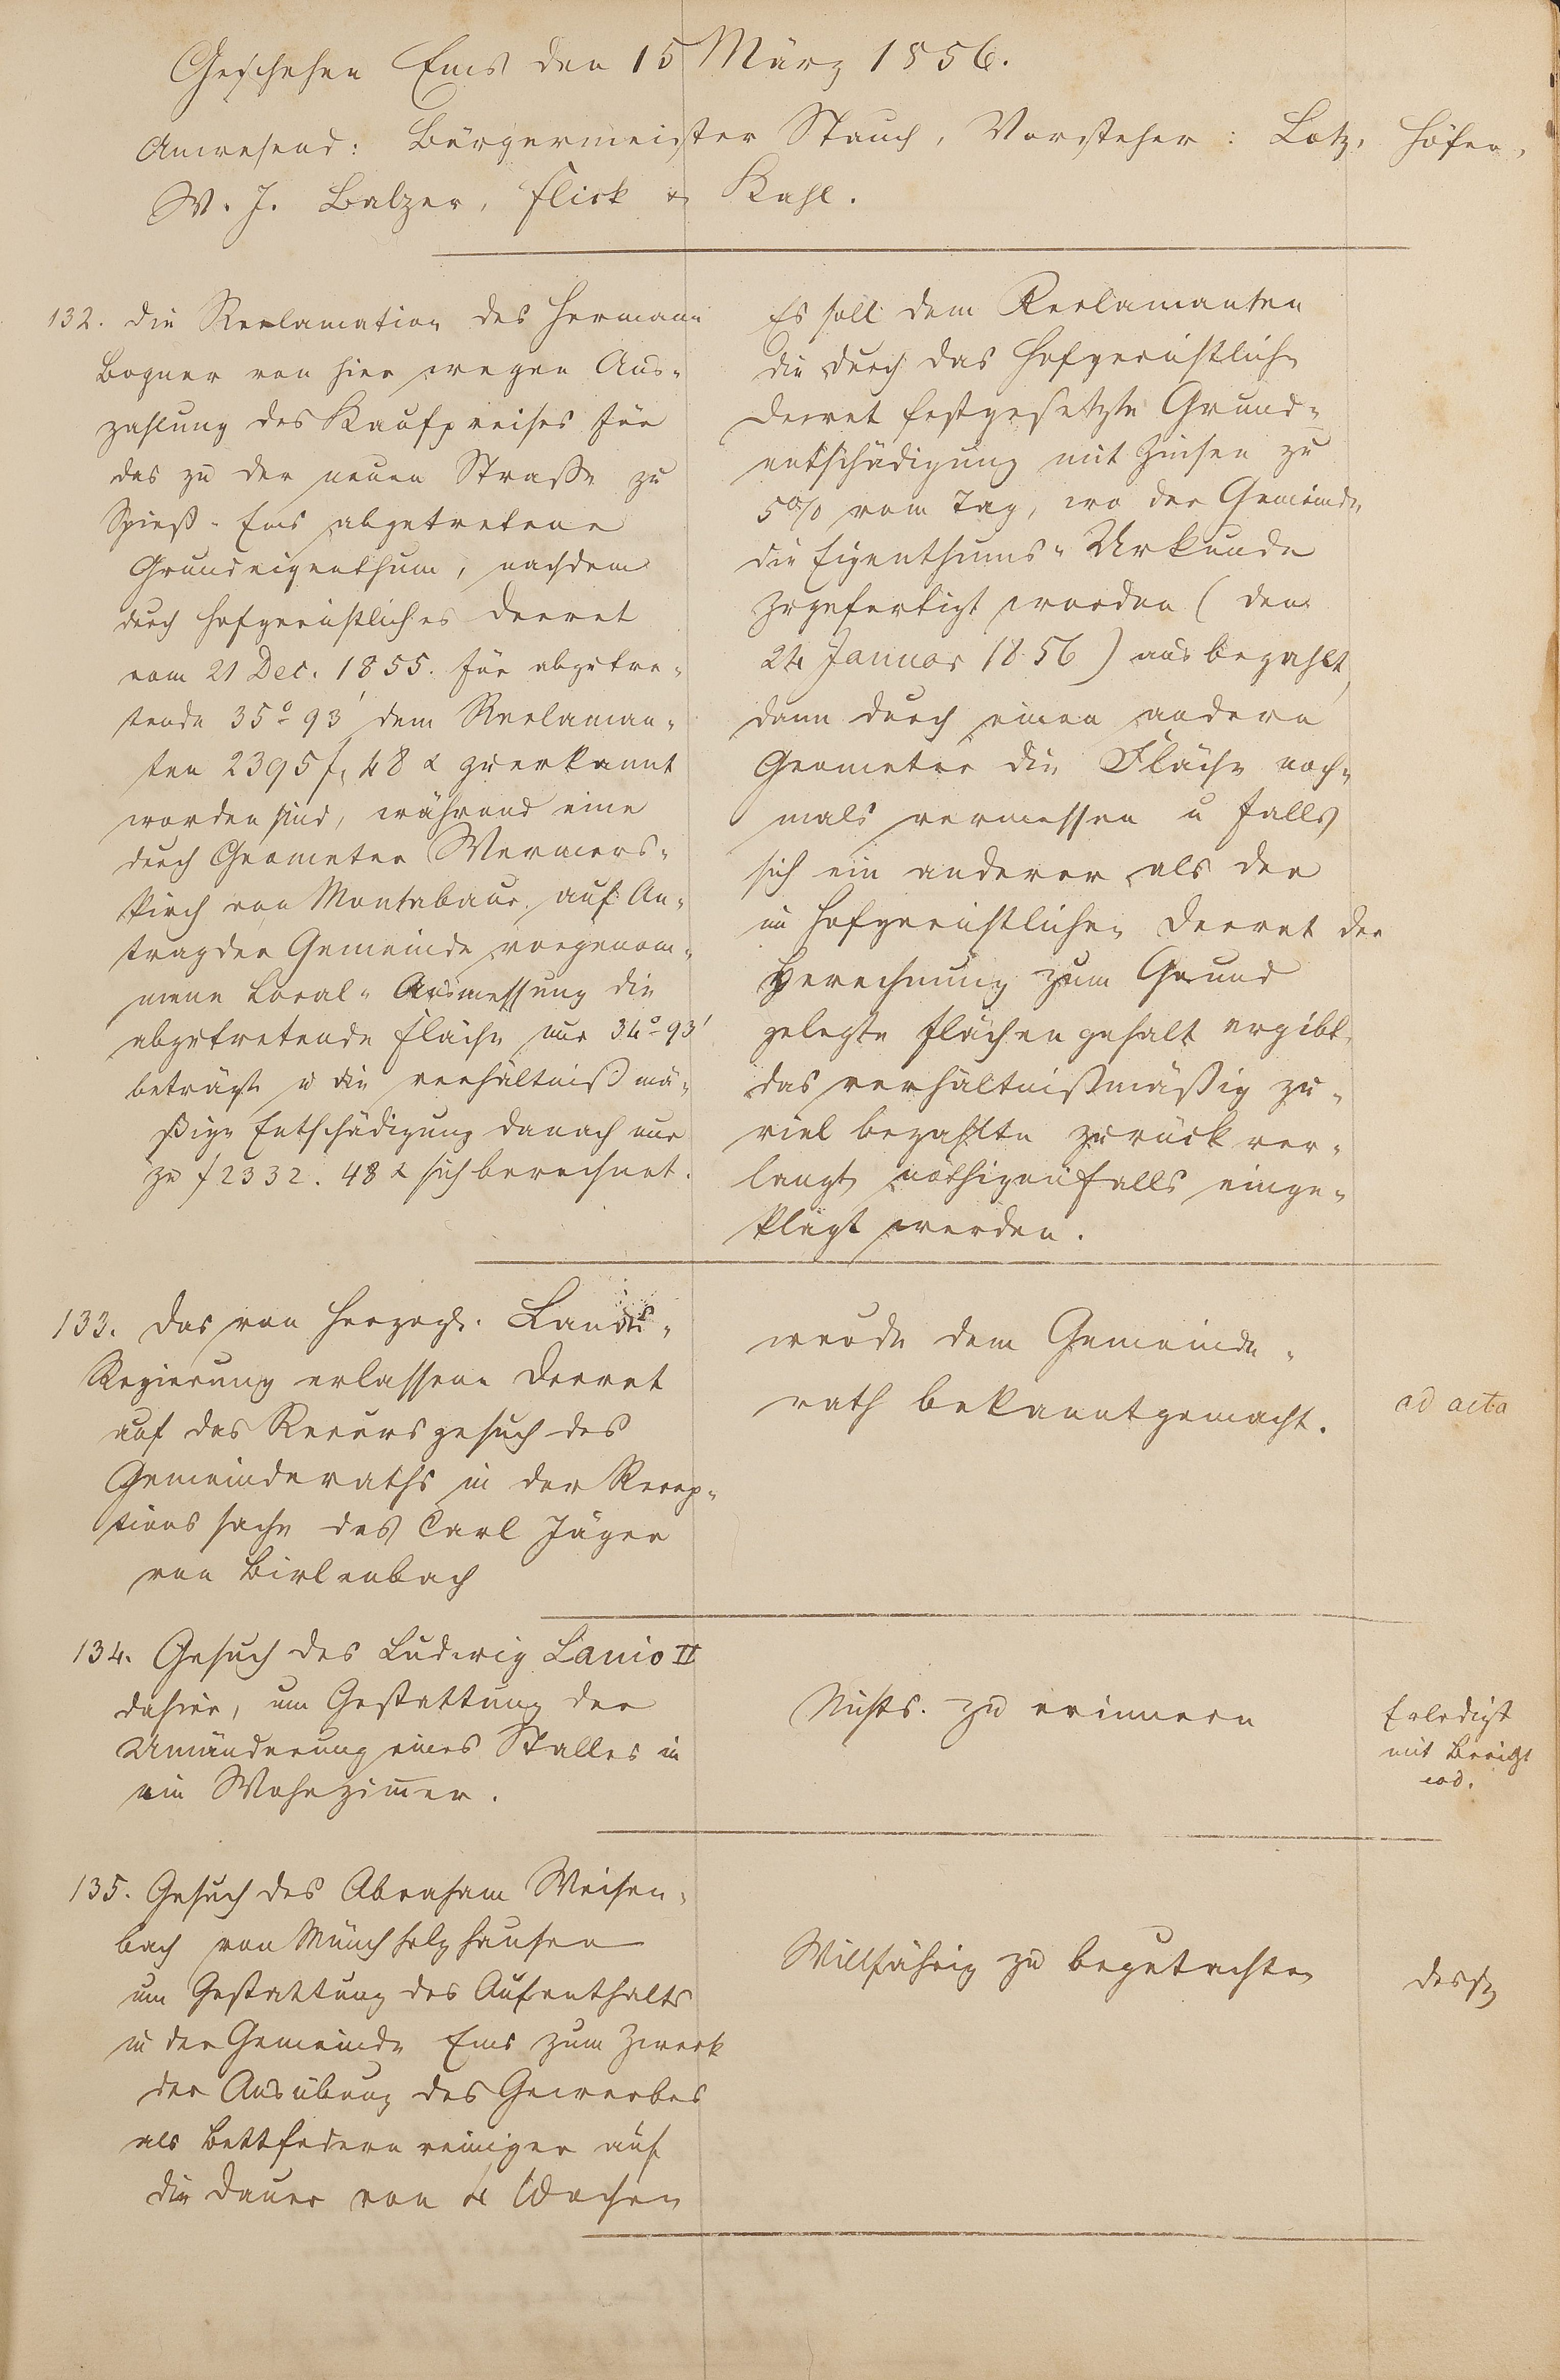 Geschehen Ems den 15 März 1856.
Anwesend: Bürgermeister Stauch, Vorsteher: Lotz, Höfer,
W. J. Balzer, Flick & Kahl.
132. Die Reclamation des Hermann
Bogner von hier wegen Aus-
zahlung des Kaufpreises für
das zu der neuen Straße zu
Spieß-Ems abgetretene
Grundeigenthum, nachdem
durch hofgerichtliches Decret
vom 21 Dec. 1855. für abgetre-
tende 35° 93' dem Reclaman-
ten 2395 f, 48 x zuerkannt
worden sind, während eine
durch Geometer Wermers-
kirch von Montabaur auf An-
trag der Gemeinde vorgenom-
mene Local-Ausmessung die
abzutretende Fläche nur 34° 93'
beträgt u die verhältnißmä-
ßige Entschädigung danach nur
zu f 2332. 48 x sich berechnet.
Es soll dem Reclamanten
die durch das hofgerichtliche
Decret festgesetzte Grund-
entschädigung mit Zinsen zu
5% vom Tag, wo der Gemeinde
die Eigenthums-Urkunde
zugefertigt worden (den
24 Januar 1856) ausbezahlt,
dann durch einen andern
Geometer die Fläche noch-
mals vermessen u falls
sich ein anderer als der
im hofgerichtlichen Decret der
Berechnung zum Grund
gelegte Flächengehalt ergibt
das verhältnißmäßig zu-
viel bezahlte zurück ver-
langt nöthigenfalls einge-
klagt werden.
133. Das von Herzogl. Landes-
Regierung erlassene Decret
auf das Recursgesuch des
Gemeinderaths in der Recep-
tionssache des Carl Jäger
von Birlenbach
wurde dem Gemeinde-
rath bekanntgemacht.
ad acta
134. Gesuch des Ludwig Lanio II
dahier, um Gestattung der
Umänderung eines Stalles in
ein Wohnzimmer.
Nichts zu erinnern
Erledigt
mit Bericht
eod.
135. Gesuch des Abraham Weisen-
bach von Münchholzhausen
um Gestattung des Aufenthalts
in der Gemeinde Ems zum Zweck
der Ausübung des Gewerbes
als Bettfedern reiniger auf
die Dauer von 4 Wochen
Willfährig zu begutachten
desgl